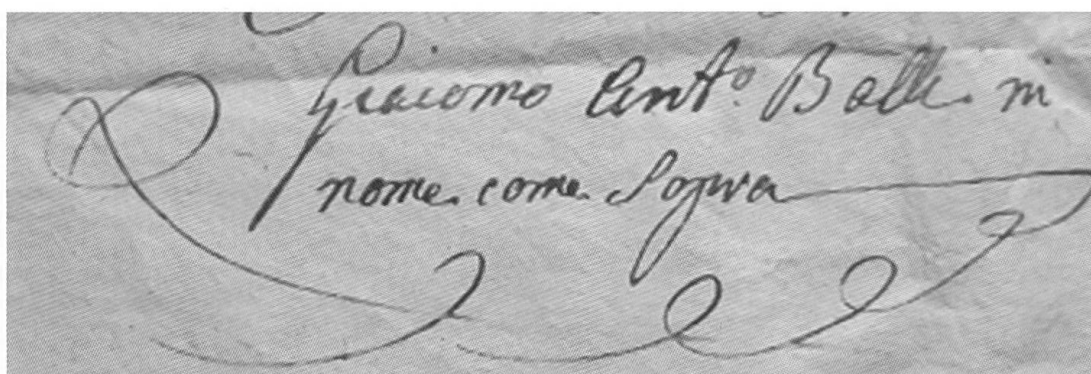 Giacomo Ant.º Balli. in
nome. come. Sopra